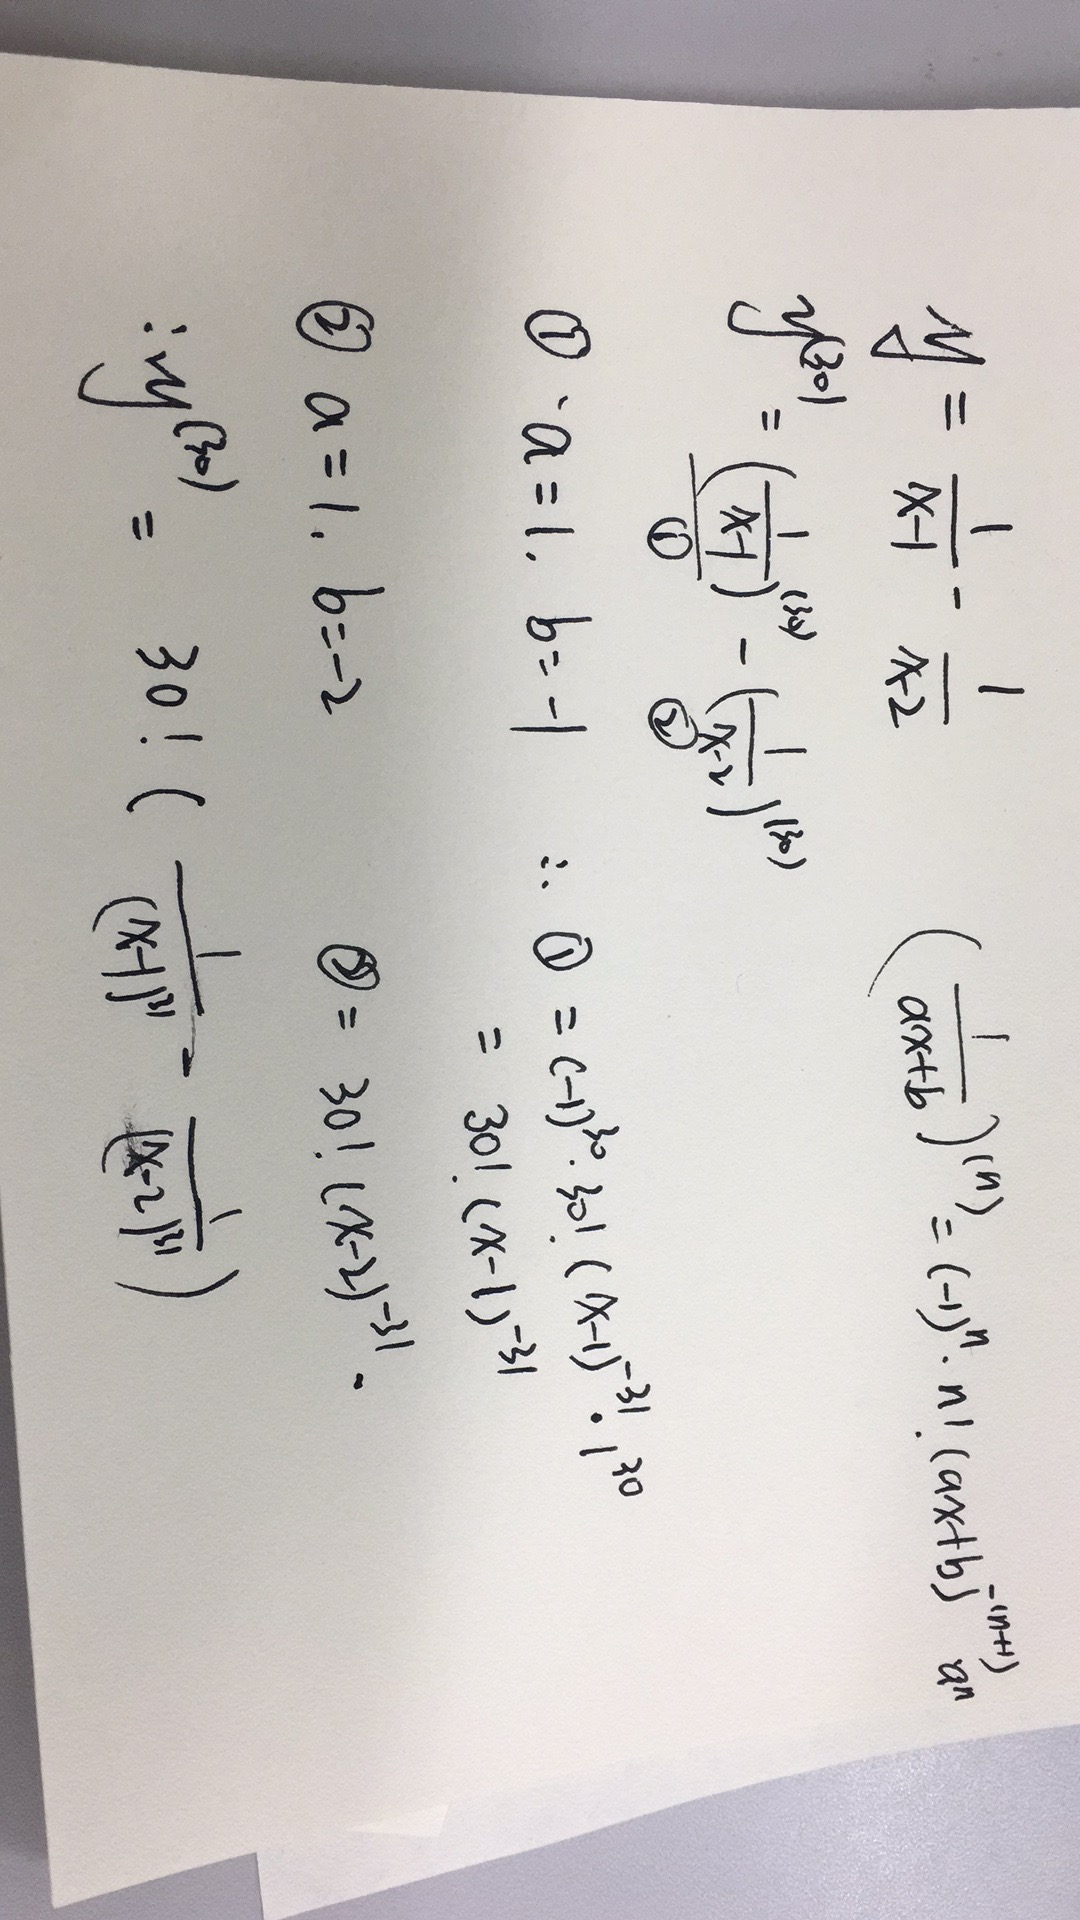 y = 1/(x-1) - 1/(x-2) (1/(ax+b))^(n) = (-1)^n · n! (ax+b)^-(n+1) a^n
y^(30) = (1/(x-1))^(30) - (1/(x-2))^(30)
① ②
① · a=1. b=-1 ∴ ① = (-1)^30 · 30! (x-1)^-31 · 1^30
= 30! (x-1)^-31
② a=1. b=-2 ② = 30! (x-2)^-31 .
∴ y^(30) = 30! ( 1/(x-1)^31 - 1/(x-2)^31 )